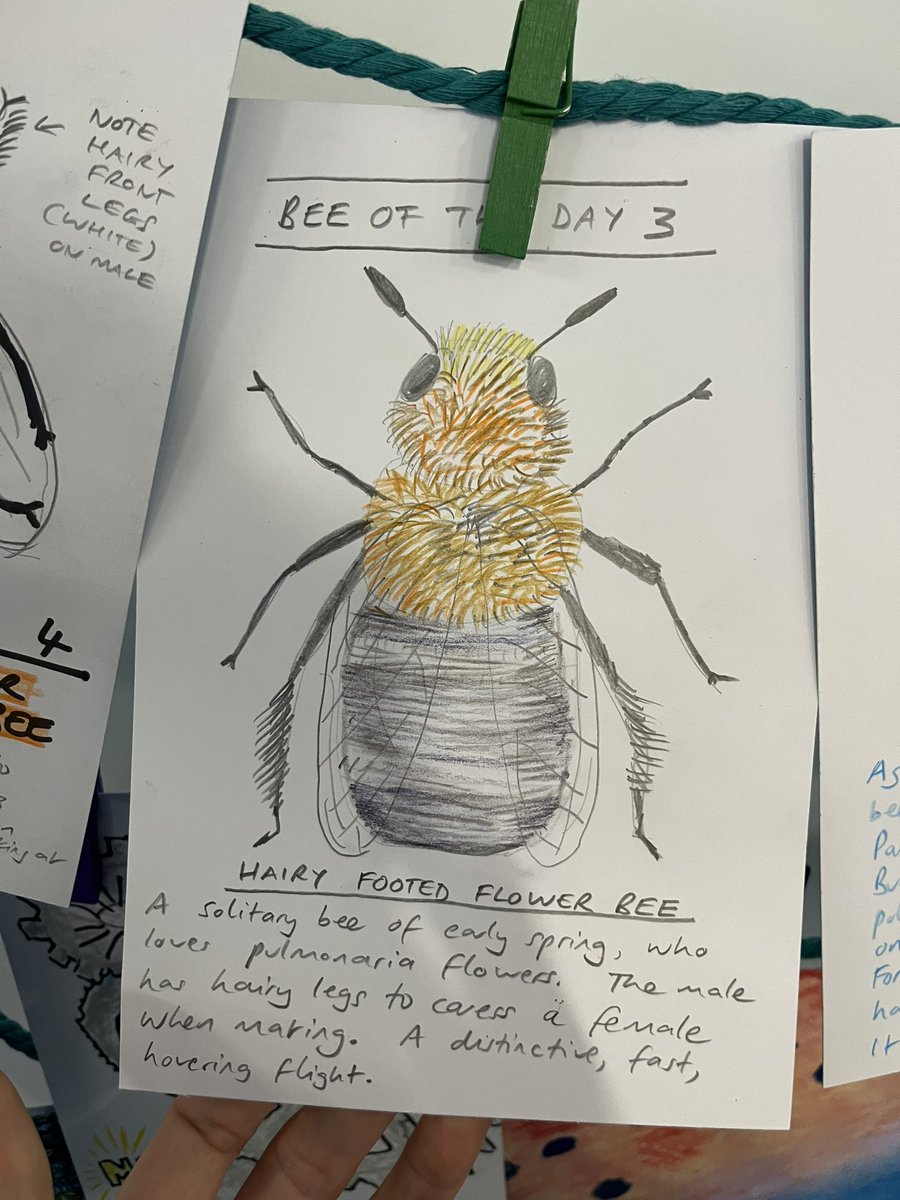 NOTE
HAIRY
FRONT
LEGS
(WHITE)
ON MALE
4
BEE OF DAY 3
HAIRY FOOTED FLOWER BEE
A solitary bee of early spring, who
loves pulmonaria flowers. The male
has hairy legs to caress a female
when mating. A distinctive, fast,
hovering flight.